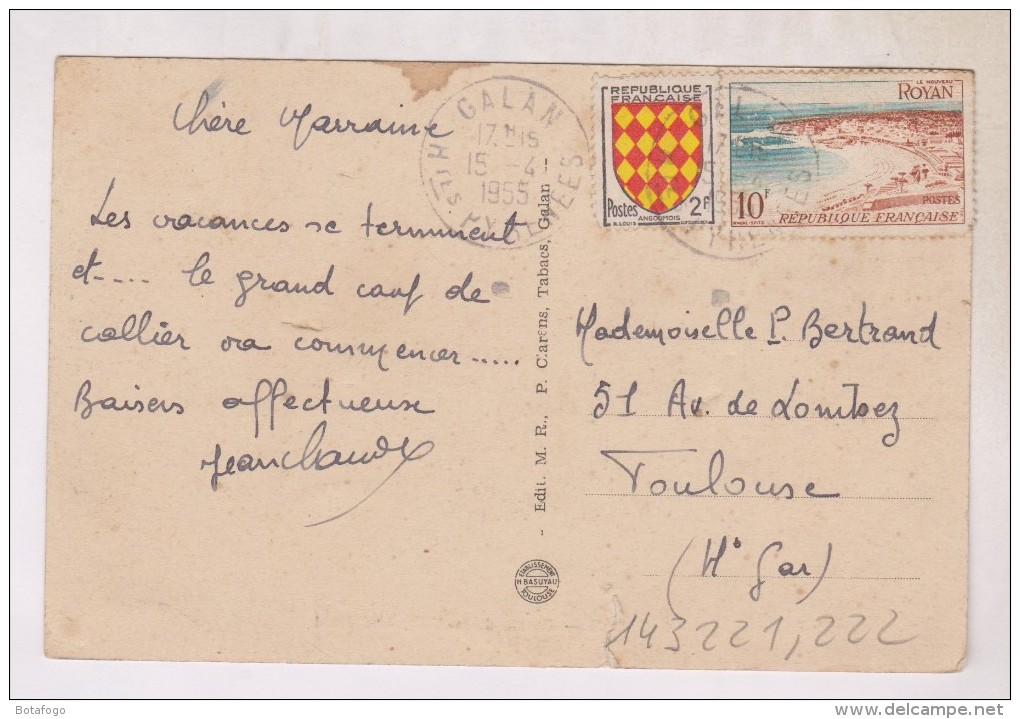 GALAN
17 H 15
15 - 4
1955
HTES PYRENEES
REPUBLIQUE
FRANCAISE
Postes 2F
ANGOUMOIS
LE NOUVEAU
ROYAN
10F
POSTES
RÉPUBLIQUE FRANÇAISE
Chère Marraine
Les vacances se terminent
et.... le grand coup de
collier va commencer.....
Baisers affectueux
Jean Claude
- Edit. M. R., P. Clarens, Tabacs, Galan -
ETABLISSEMENT
H BASUYAU
TOULOUSE
Mademoiselle P. Bertrand
51 Av. de Lombez
Toulouse
(Hte Gar)
143221,222
Botafogo
www.delcampe.net